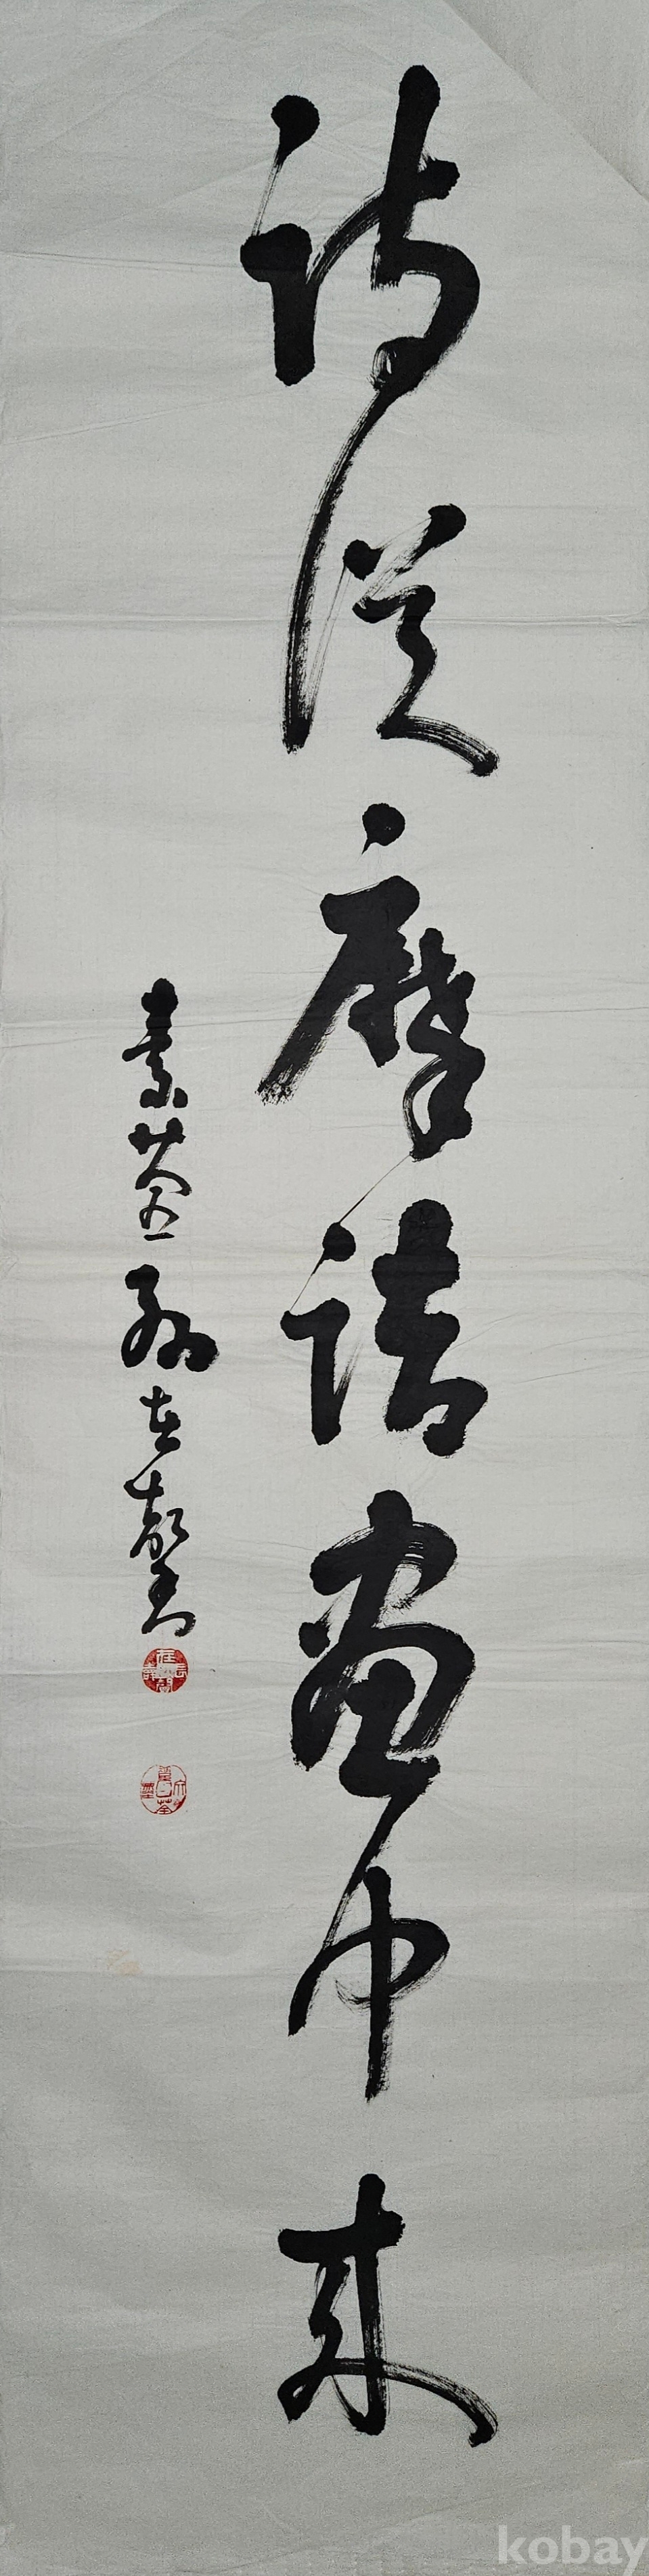 詩從摩詰畫中來
素荃 孫在馨
kobay